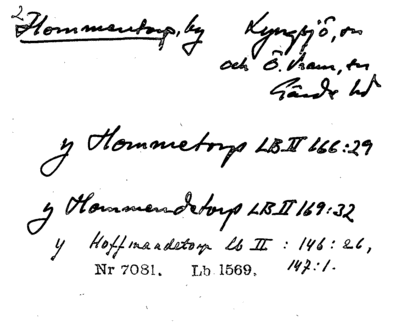 2 Hommentorp, by Lyngsjö, sn
och Ö. Vram, sn
Gärds hd
y Hommetorp LB II 166:29
y Hommendetorp LB II 169:32
y Hoffmandetorp Lb II : 146 : 26,
147:1.
Nr 7081. Lb 1569.